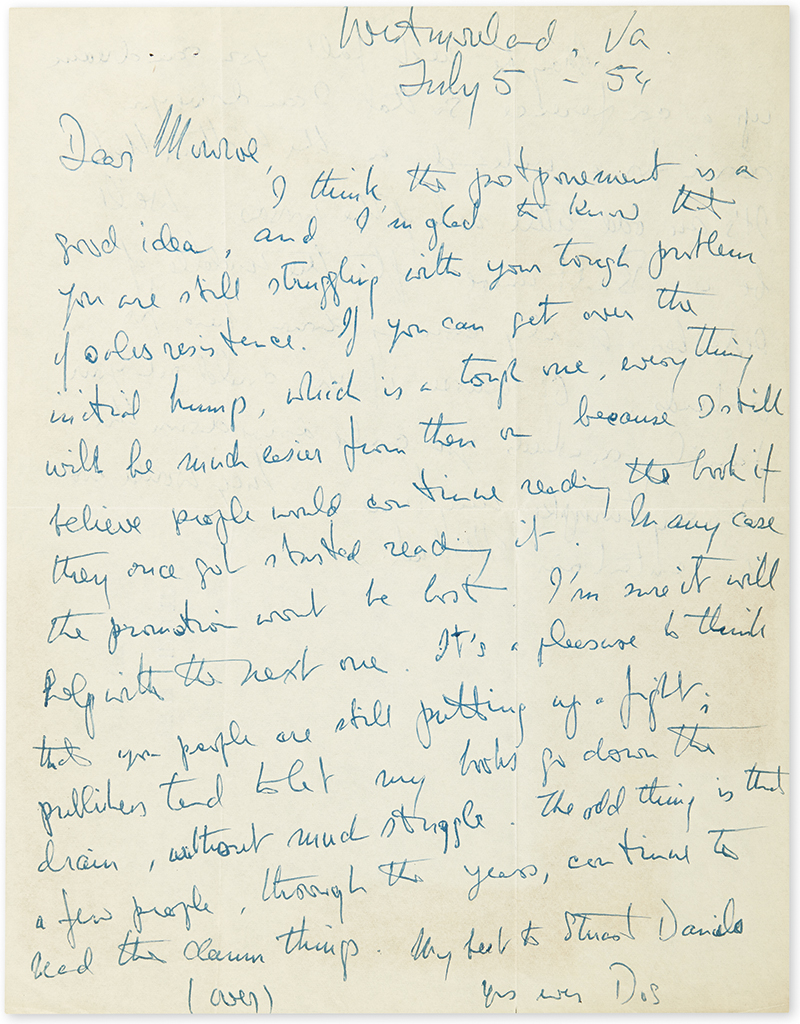 Westmoreland, Va.
July 5 - 54
Dear Munroe,
I think the postponement is a
good idea, and I'm glad to know that
you are still struggling with your tough problem
of sales resistence. If you can get over the
initial hump, which is a tough one, everything
will be much easier from then on because I still
believe people would continue reading the book if
they once got started reading it. In any case
the promotion wont be lost. I'm sure it will
help with the next one. It's a pleasure to think
that you people are still putting up a fight;
publishers tend to let my books go down the
drain, without much struggle. The odd thing is that
a few people, through the years, continue to
read the damn things. My best to Stuart Daniels
(over) Yrs, ever Dos